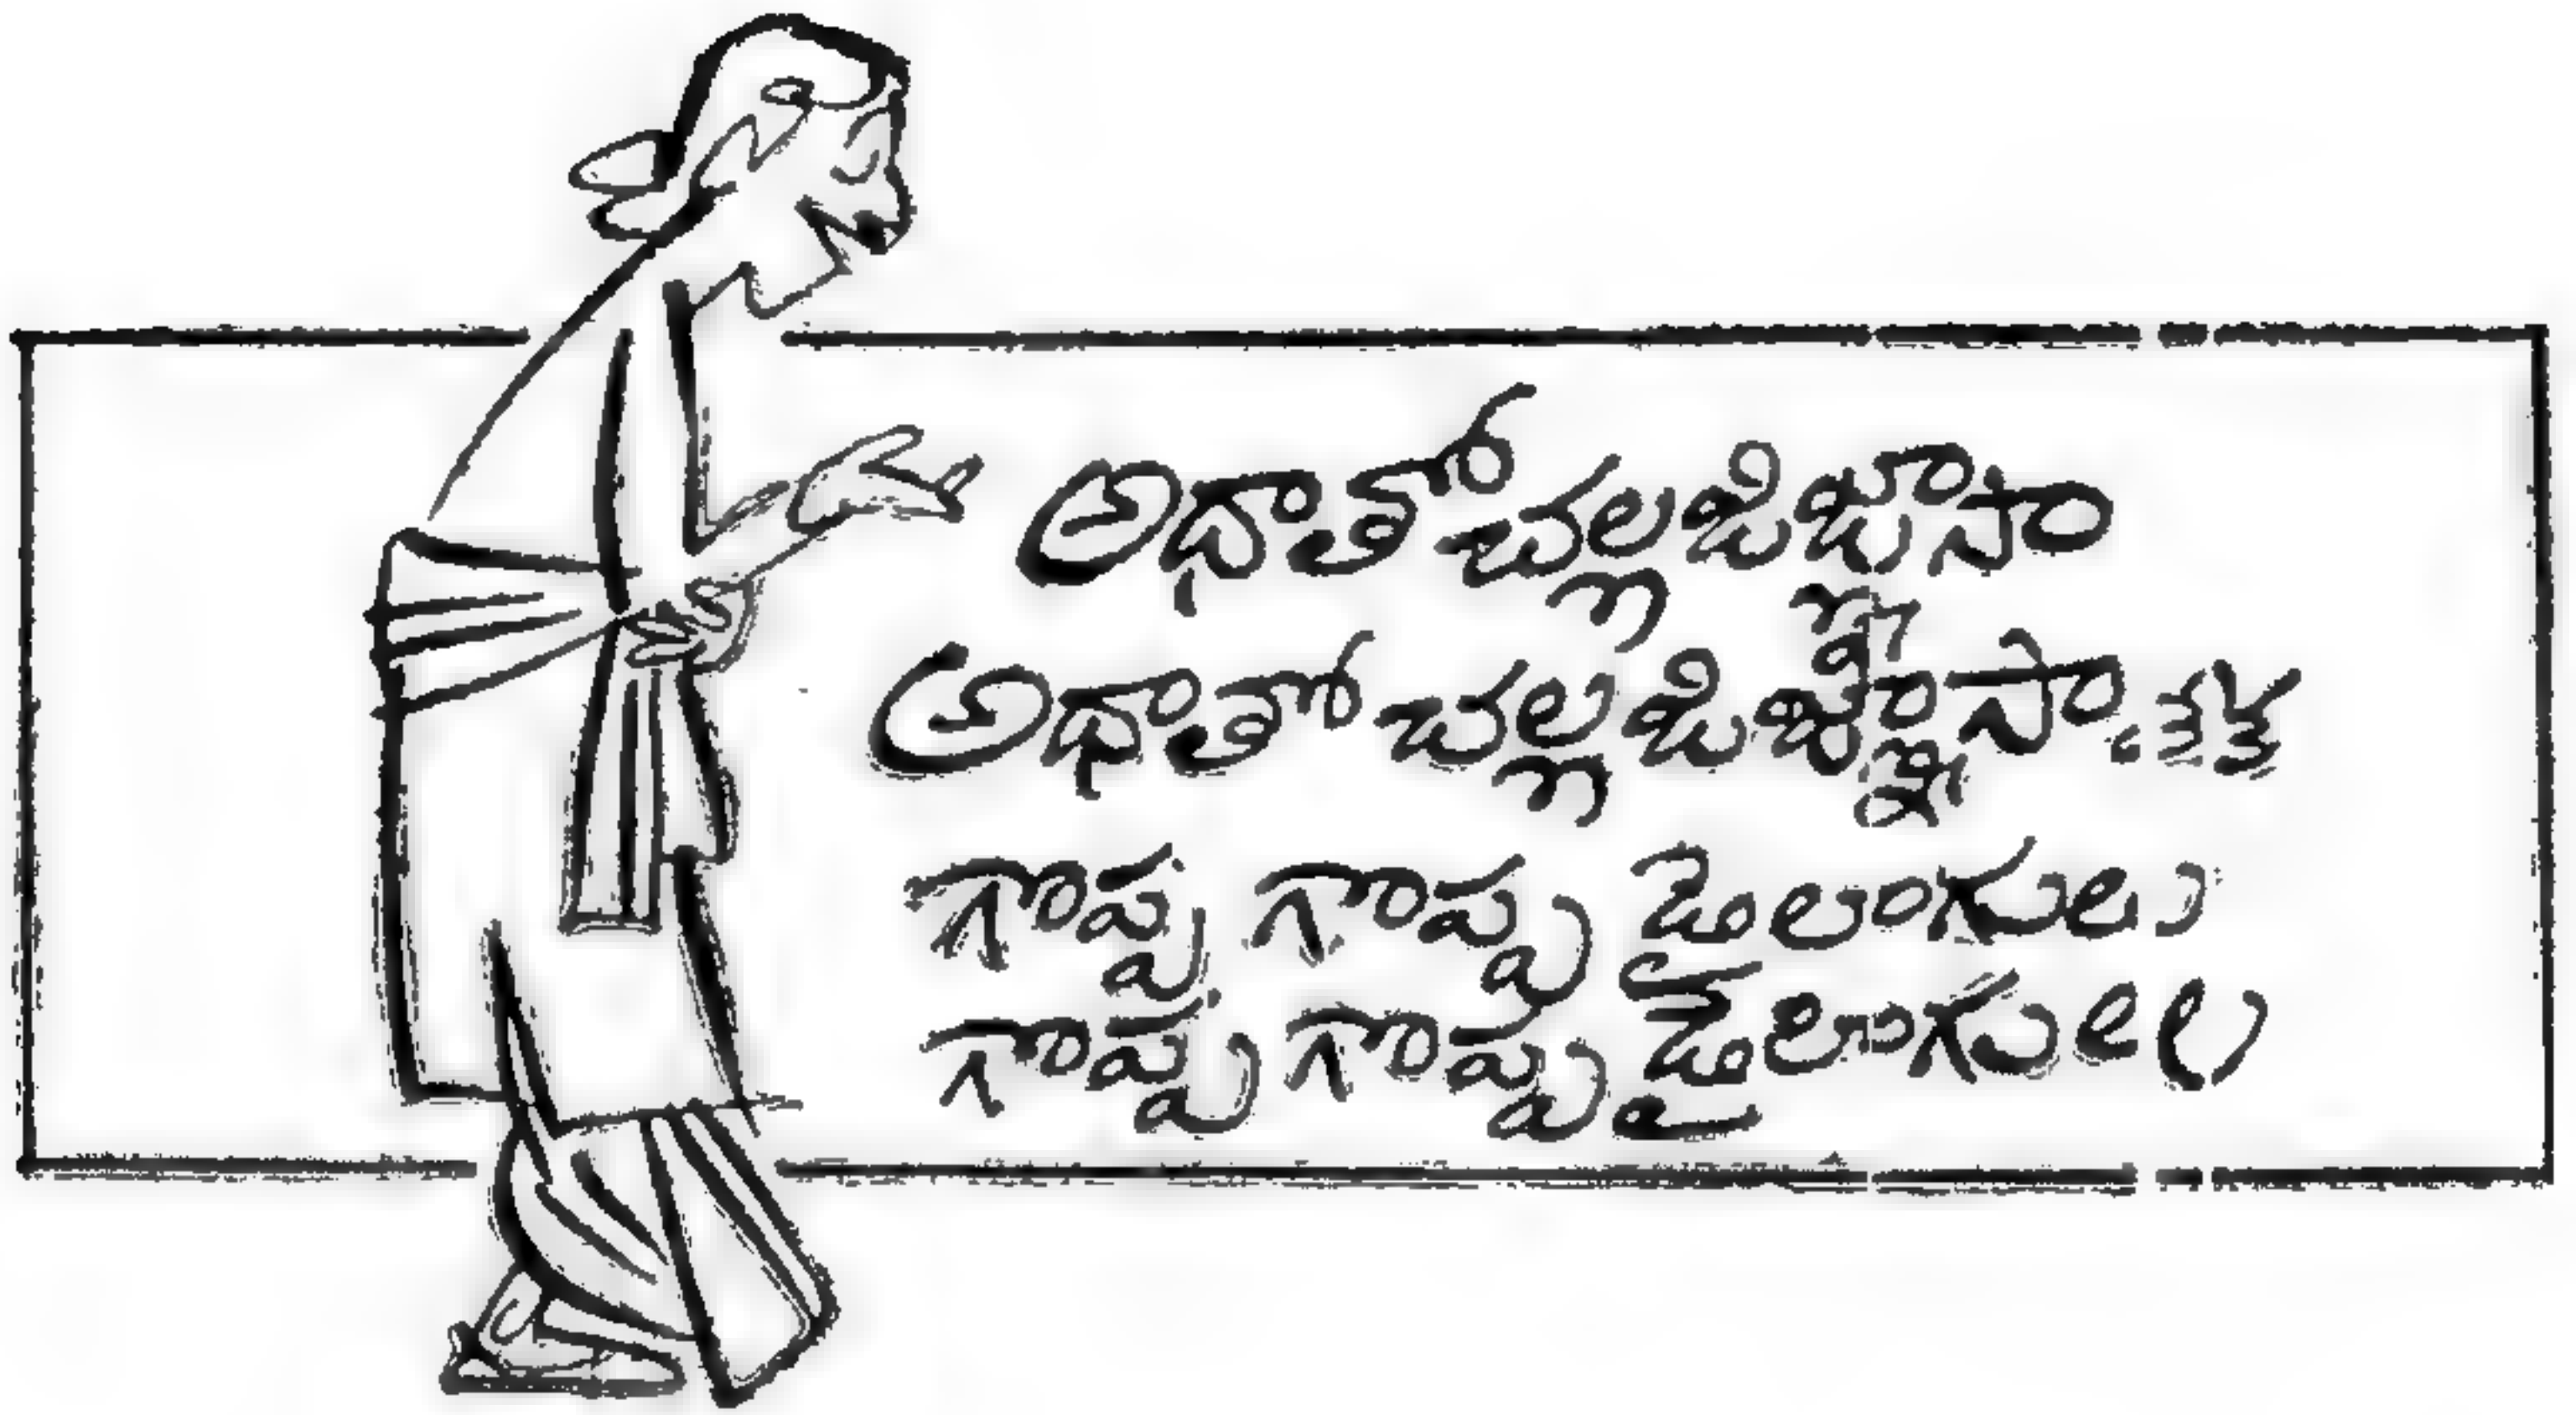 అధాతో చల్ల జిజ్ఞాసా
అధాతో చల్ల జిజ్ఞాసాః
గొప్ప గొప్ప డైలాగులు
గొప్ప గొప్ప డైలాగులు